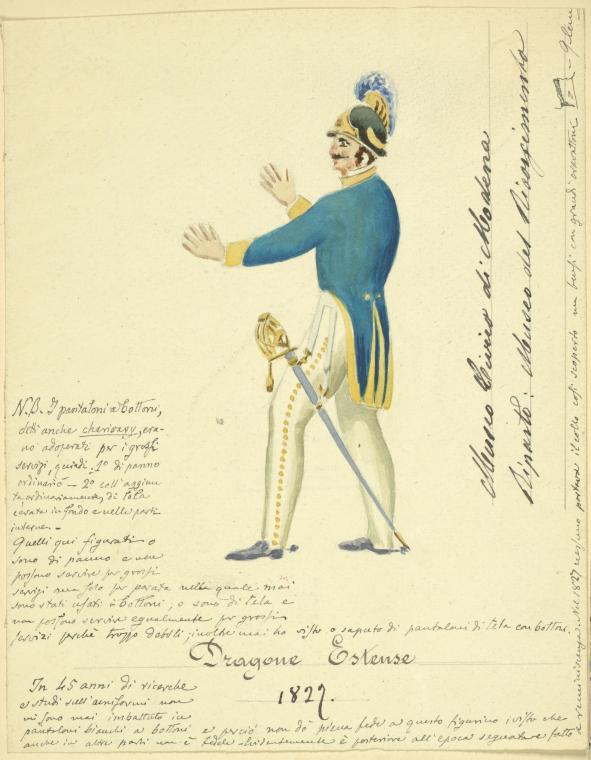 Museo Civico di Modena
Riparto: Museo del Risorgimento
N.B. I pantaloni a bottoni,
detti anche cherivary, era-
no adoperati per i grossi
servizi, quindi 1º di panno
ordinario - 2º coll'aggiun-
ta, ordinariamente, di tela
cerata in fondo e nelle parti
interne. -
Quelli qui figurati o
sono di panno e non
possono servire per grossi
servizi ma solo per parata nella quale mai
sono stati usati a bottoni, o sono di tela e
non possono servire egualmente per grossi
servizi perchè troppo deboli; inoltre mai ho visto o saputo di pantaloni di tela con bottoni.
Dragone Estense
1827.
In 45 anni di ricerche
e studi sull'uniformi non
mi sono mai imbattuto in
pantaloni bianchi a bottoni e perciò non dò piena fede a questo figurino; visto che
anche in altre parti non è fedele. Evidentemente è posteriore all'epoca segnata e fatto
a reminiscenza. Nel 1827 nessuno portava il collo così scoperto ma bensì con grandi